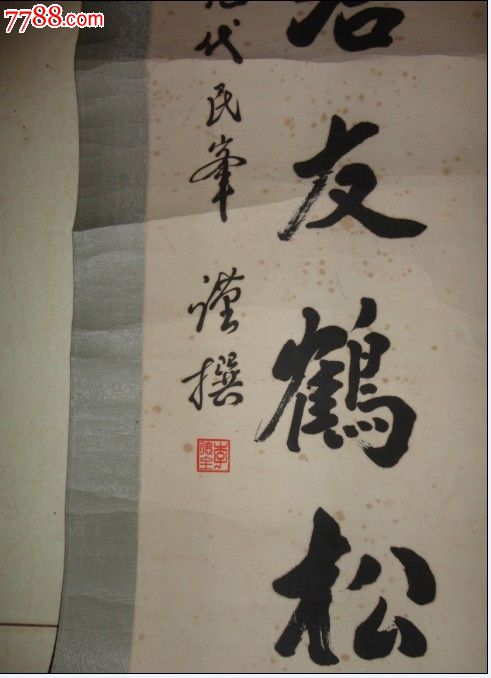 7788.com
友鶴松
代民峯 謹撰